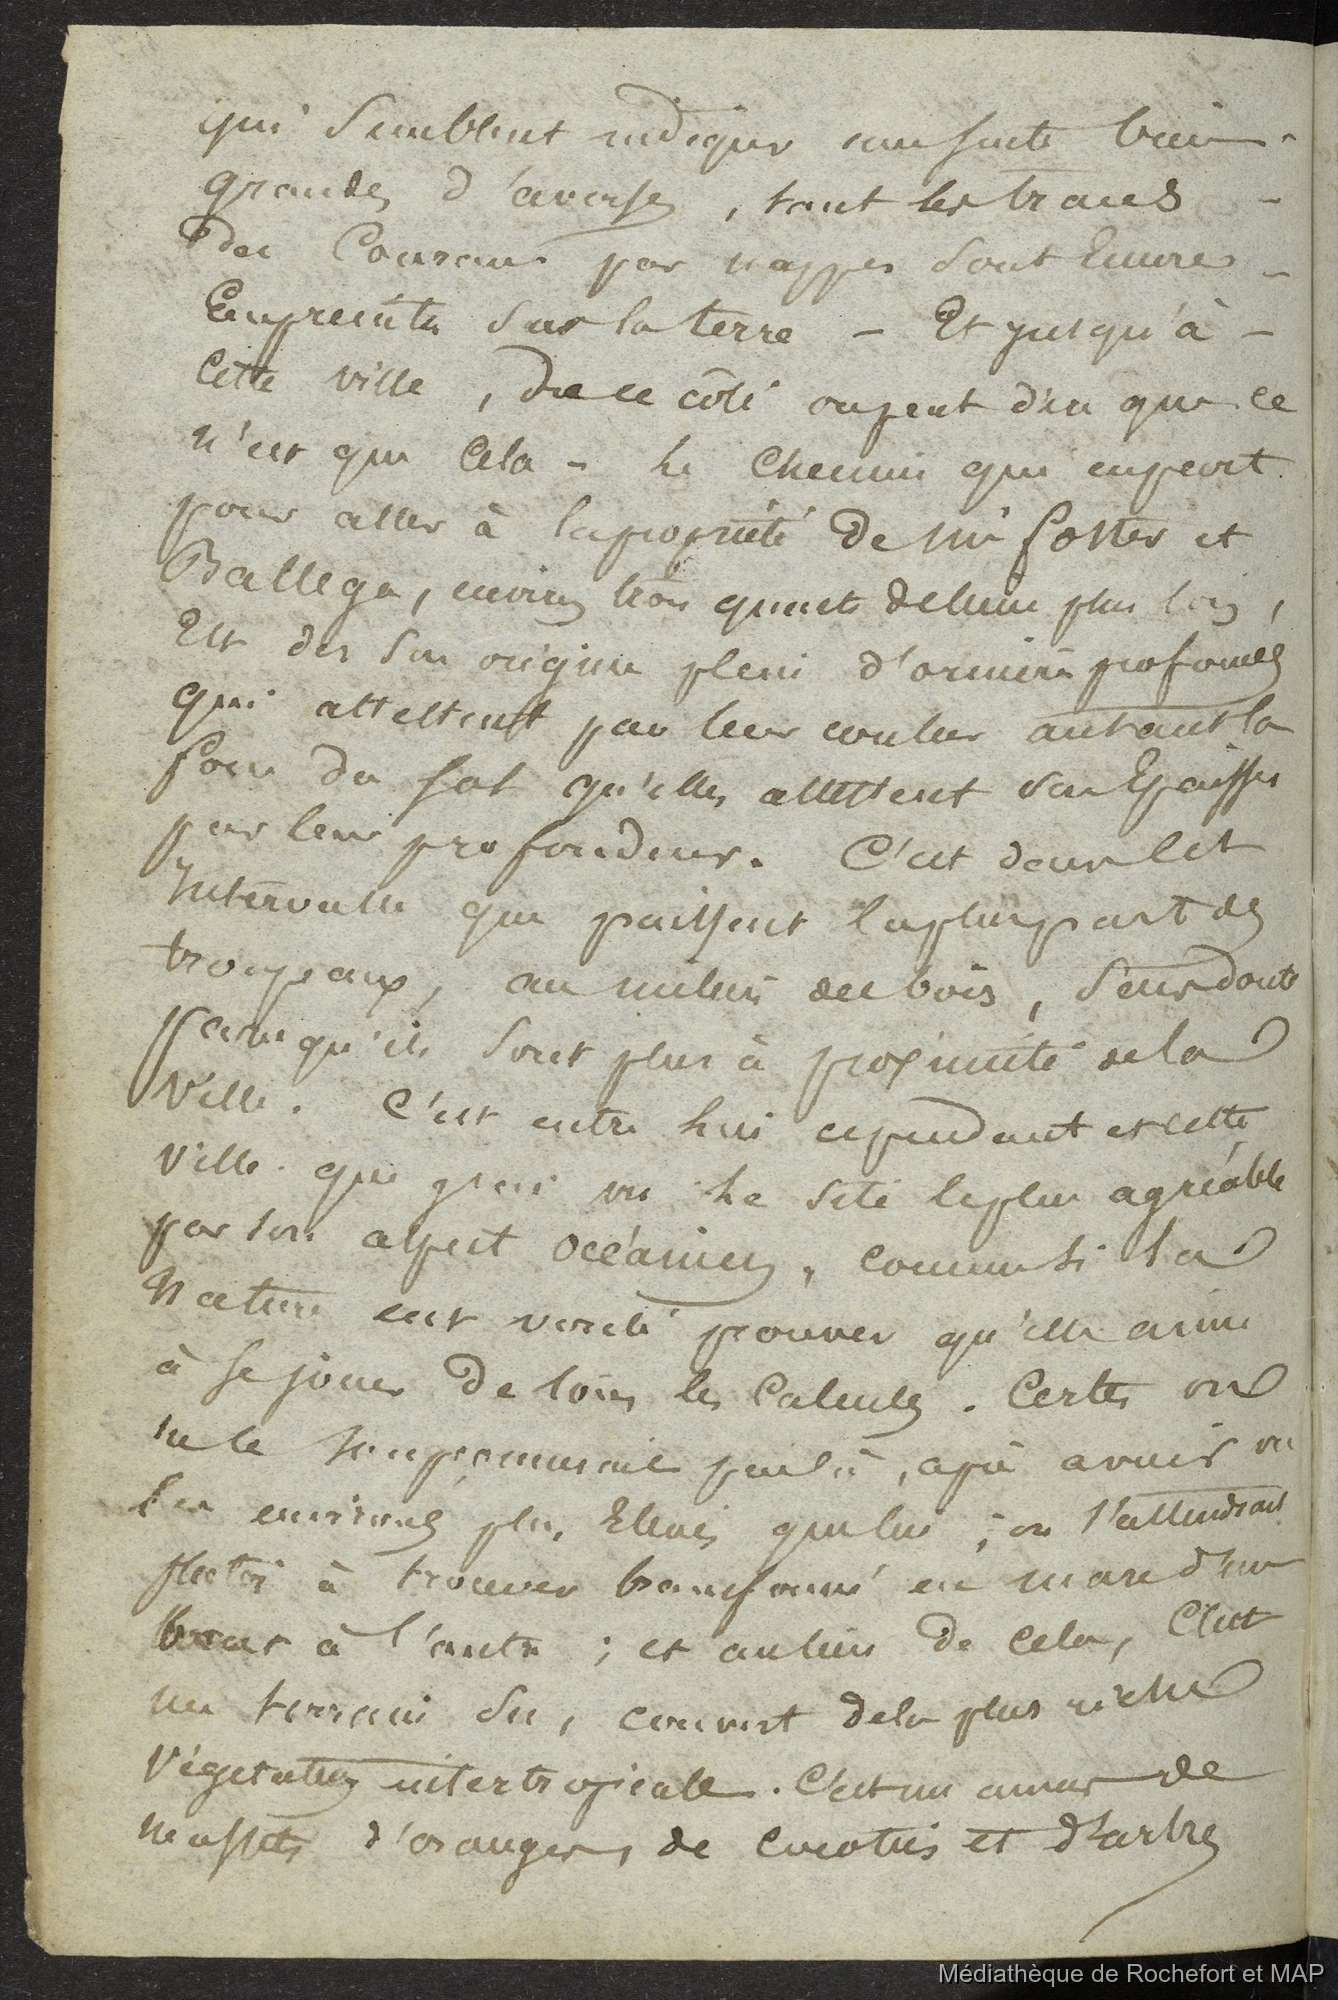 qui semblent indiquer une suite bien
grandes d'averses, tant les traces -
des Courans par nappes sont encore -
Empreintes sur la terre - Et jusqu'à -
Cette ville, de ce côté on peut dire que ce
n'est que Cela - Le Chemin qui en part
pour aller à la propriété de Mrs Foster et
Ballega, environ trois quarts de lieue plus loin,
Est dès son origine plein d'ornières profondes
qui attestent par leur couleur autant la
du sol qu'elles attestent son Epaisseur
par leur profondeur. C'est dans cet
Intervalle que paissent la pluspart des
troupeaux, au milieu des bois, sans doute
parcequ'ils sont plus à proximité de la
Ville. C'est entre lui cependant et cette
Ville que j'ai vu le site le plus agréable
par son aspect océanien, comme si la
Nature eut voulu prouver qu'elle aime
à se jouer de tous les Calculs. Certes on
ne le soupçonnerait pas là, après avoir vu
les environs plus Elevés que lui ; on s'attendrait
plutôt à trouver transformé en mare d'un
bout à l'autre ; et au lieu de cela, C'est
un terrain sec, couvert de la plus riche
Végétation intertropicale. C'est un amas de
massifs d'orangers, de cocotiers et d'arbres
Médiathèque de Rochefort et MAP